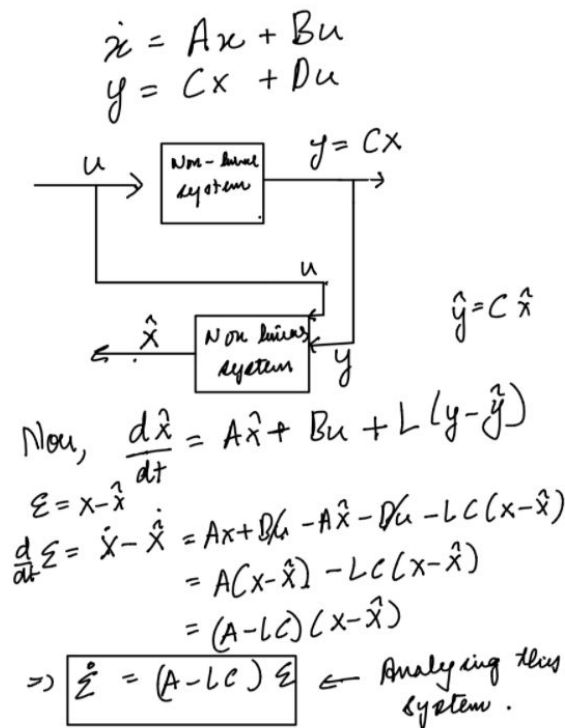 ẋ = Ax + Bu
y = Cx + Du
u
Non-linear system
y = Cx
u
x̂
Non linear system
y
ŷ = C x̂
Now, dx̂/dt = Ax̂ + Bu + L(y-ŷ)
ε = x-x̂
d/dt ε = ẋ - x̂̇ = Ax + Bu - Ax̂ - Bu - LC(x-x̂)
= A(x-x̂) - LC(x-x̂)
= (A-LC)(x-x̂)
⇒ ε̇ = (A-LC) ε ← Analysing this
system.